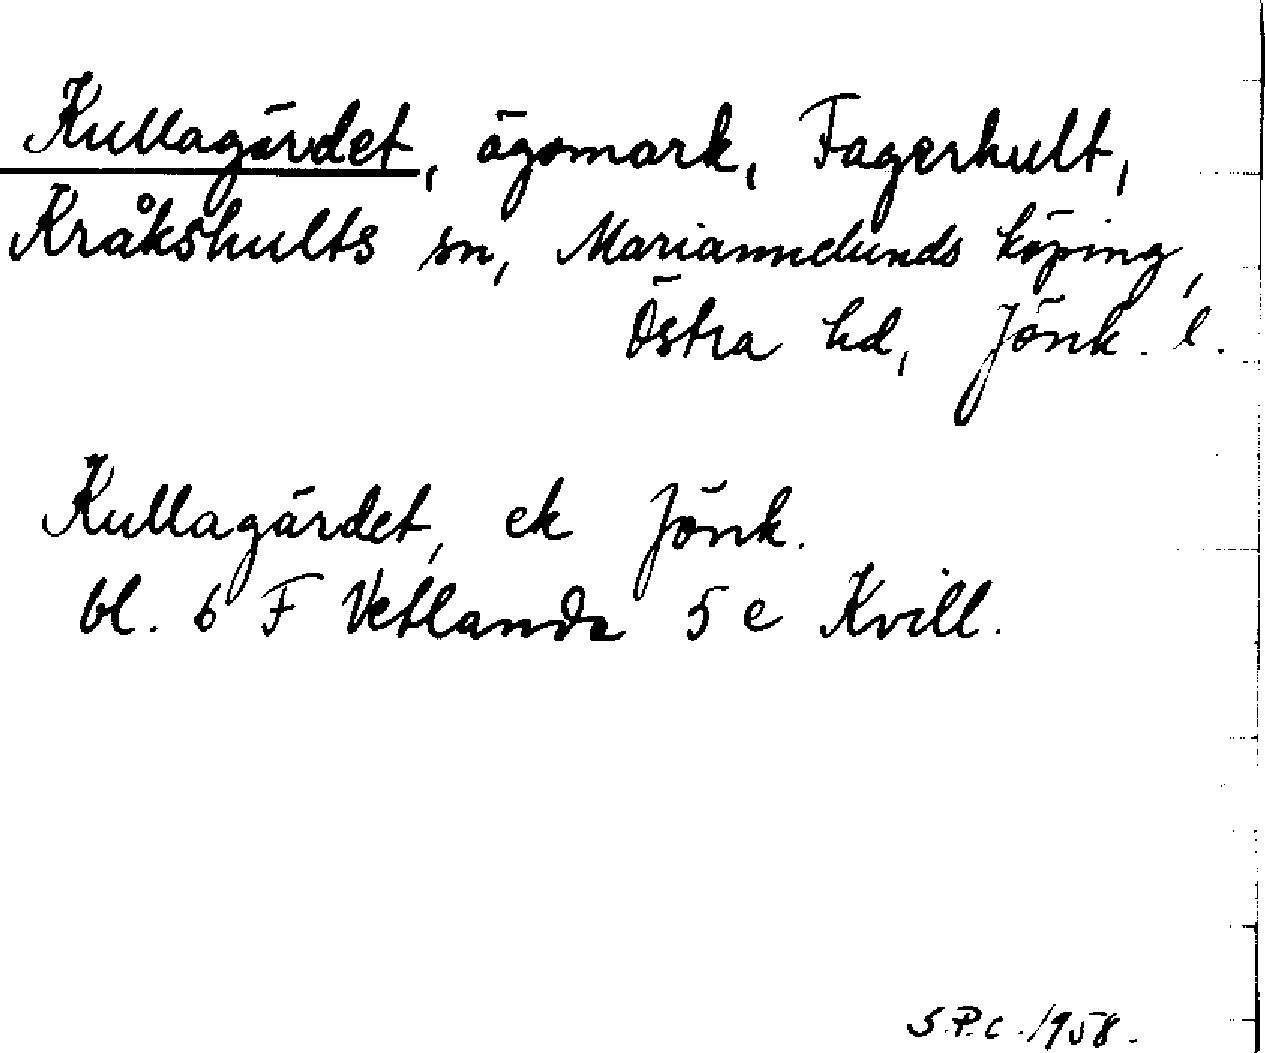 Kullagärdet, ägomark, Fagerhult,
Kråkshults sn, Mariannelunds köping,
Östra hd, Jönk. l.
Kullagärdet, ek Jönk.
bl. 6 F Vetlanda 5 e Kvill.
S.P.C. 1958.